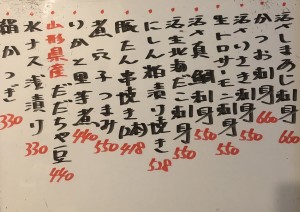 活〆しまあじ刺身 660
かつお刺身 660
活〆いさき刺身 550
生トロサーモン刺身 550
活〆真鯛刺身 550
活〆北海だこ刺身 550
にしん粕漬け焼き 528
豚たん串焼き 418
煮穴子つまみ 550
いかと里芋煮 440
山形県産だだちゃ豆 440
水ナス浅漬け 330
絹かつぎ 330